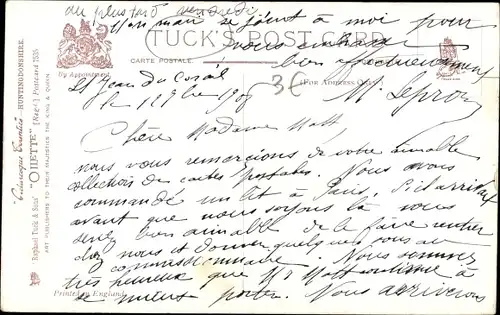 au plus tard vendredi
Mon mari se joint à moi pour
vous embrasser
bien affectueusement
M. Lepron
TUCK'S POST CARD
CARTE POSTALE.
(FOR ADDRESS ONLY)
By Appointment
3€
St Jean du
le 190
Chère Madame Mott
nous vous remercions de votre aimable
collection de cartes postales. Nous avons
commandé un lit à Paris, s'il arrive
avant que nous soyons là vous
serez bien aimable de le faire rentrer
chez nous et donner quelques sous au
commissionnaire. Nous sommes
très heureux que Mr Mott continue à
se mieux porter. Nous arriverons
Printed in England
Picturesque Counties - HUNTINGDONSHIRE.
Raphael Tuck & Sons' "OILETTE" [Regd.] Postcard 7535
ART PUBLISHERS TO THEIR MAJESTIES THE KING & QUEEN.